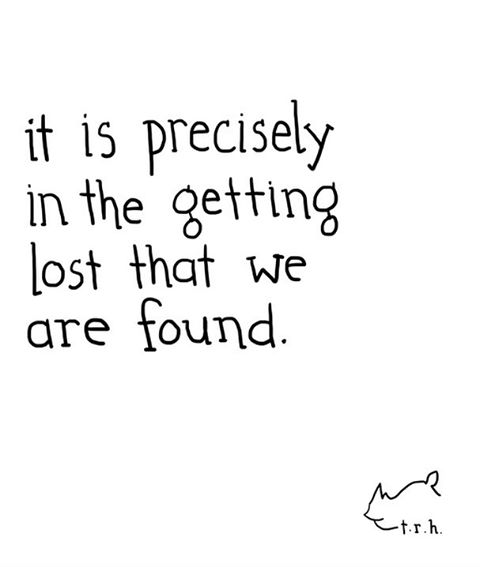 it is precisely
in the getting
lost that we
are found.
t.r.h.